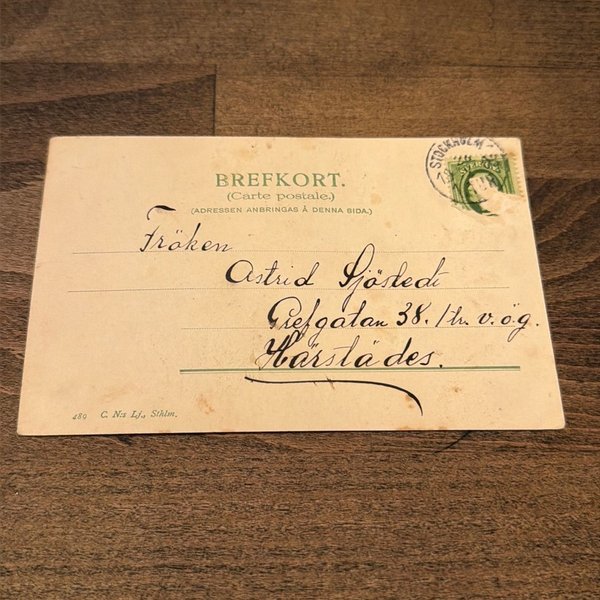 BREFKORT.
(Carte postale.)
(ADRESSEN ANBRINGAS Å DENNA SIDA.)
STOCKHOLM
SVERIGE
Fröken
Astrid Sjöstedt
Grefgatan 38. 1 tr. v. ö. g.
Härstädes.
489 C. N:s Lj., Sthlm.